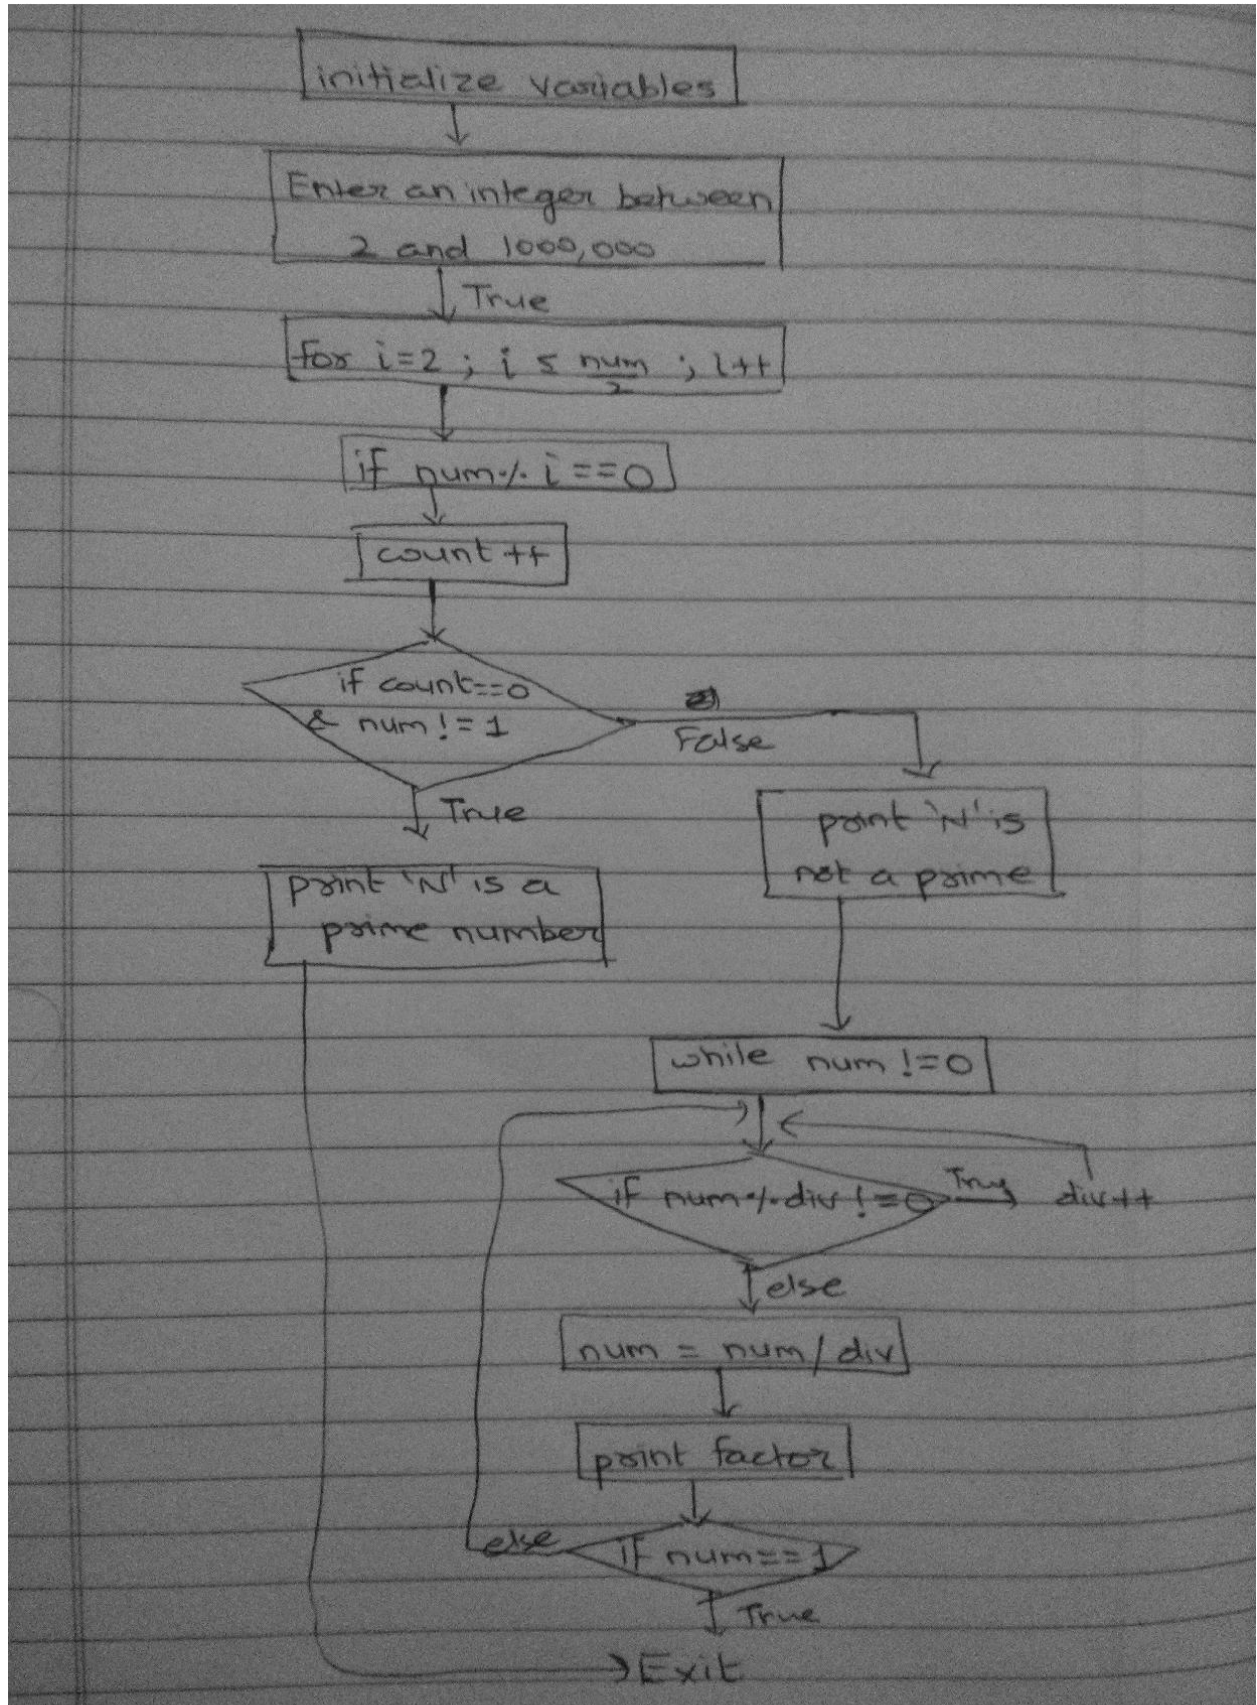 initialize variables
Enter an integer between
2 and 1000,000
True
for i=2 ; i ≤ num/2 ; i++
if num % i ==0
count ++
if count==0
& num != 1
False
True
print 'N' is
not a prime
print 'N' is a
prime number
while num !=0
if num % div !=0
True
div++
else
num = num / div
print factor
if num==1
else
True
Exit